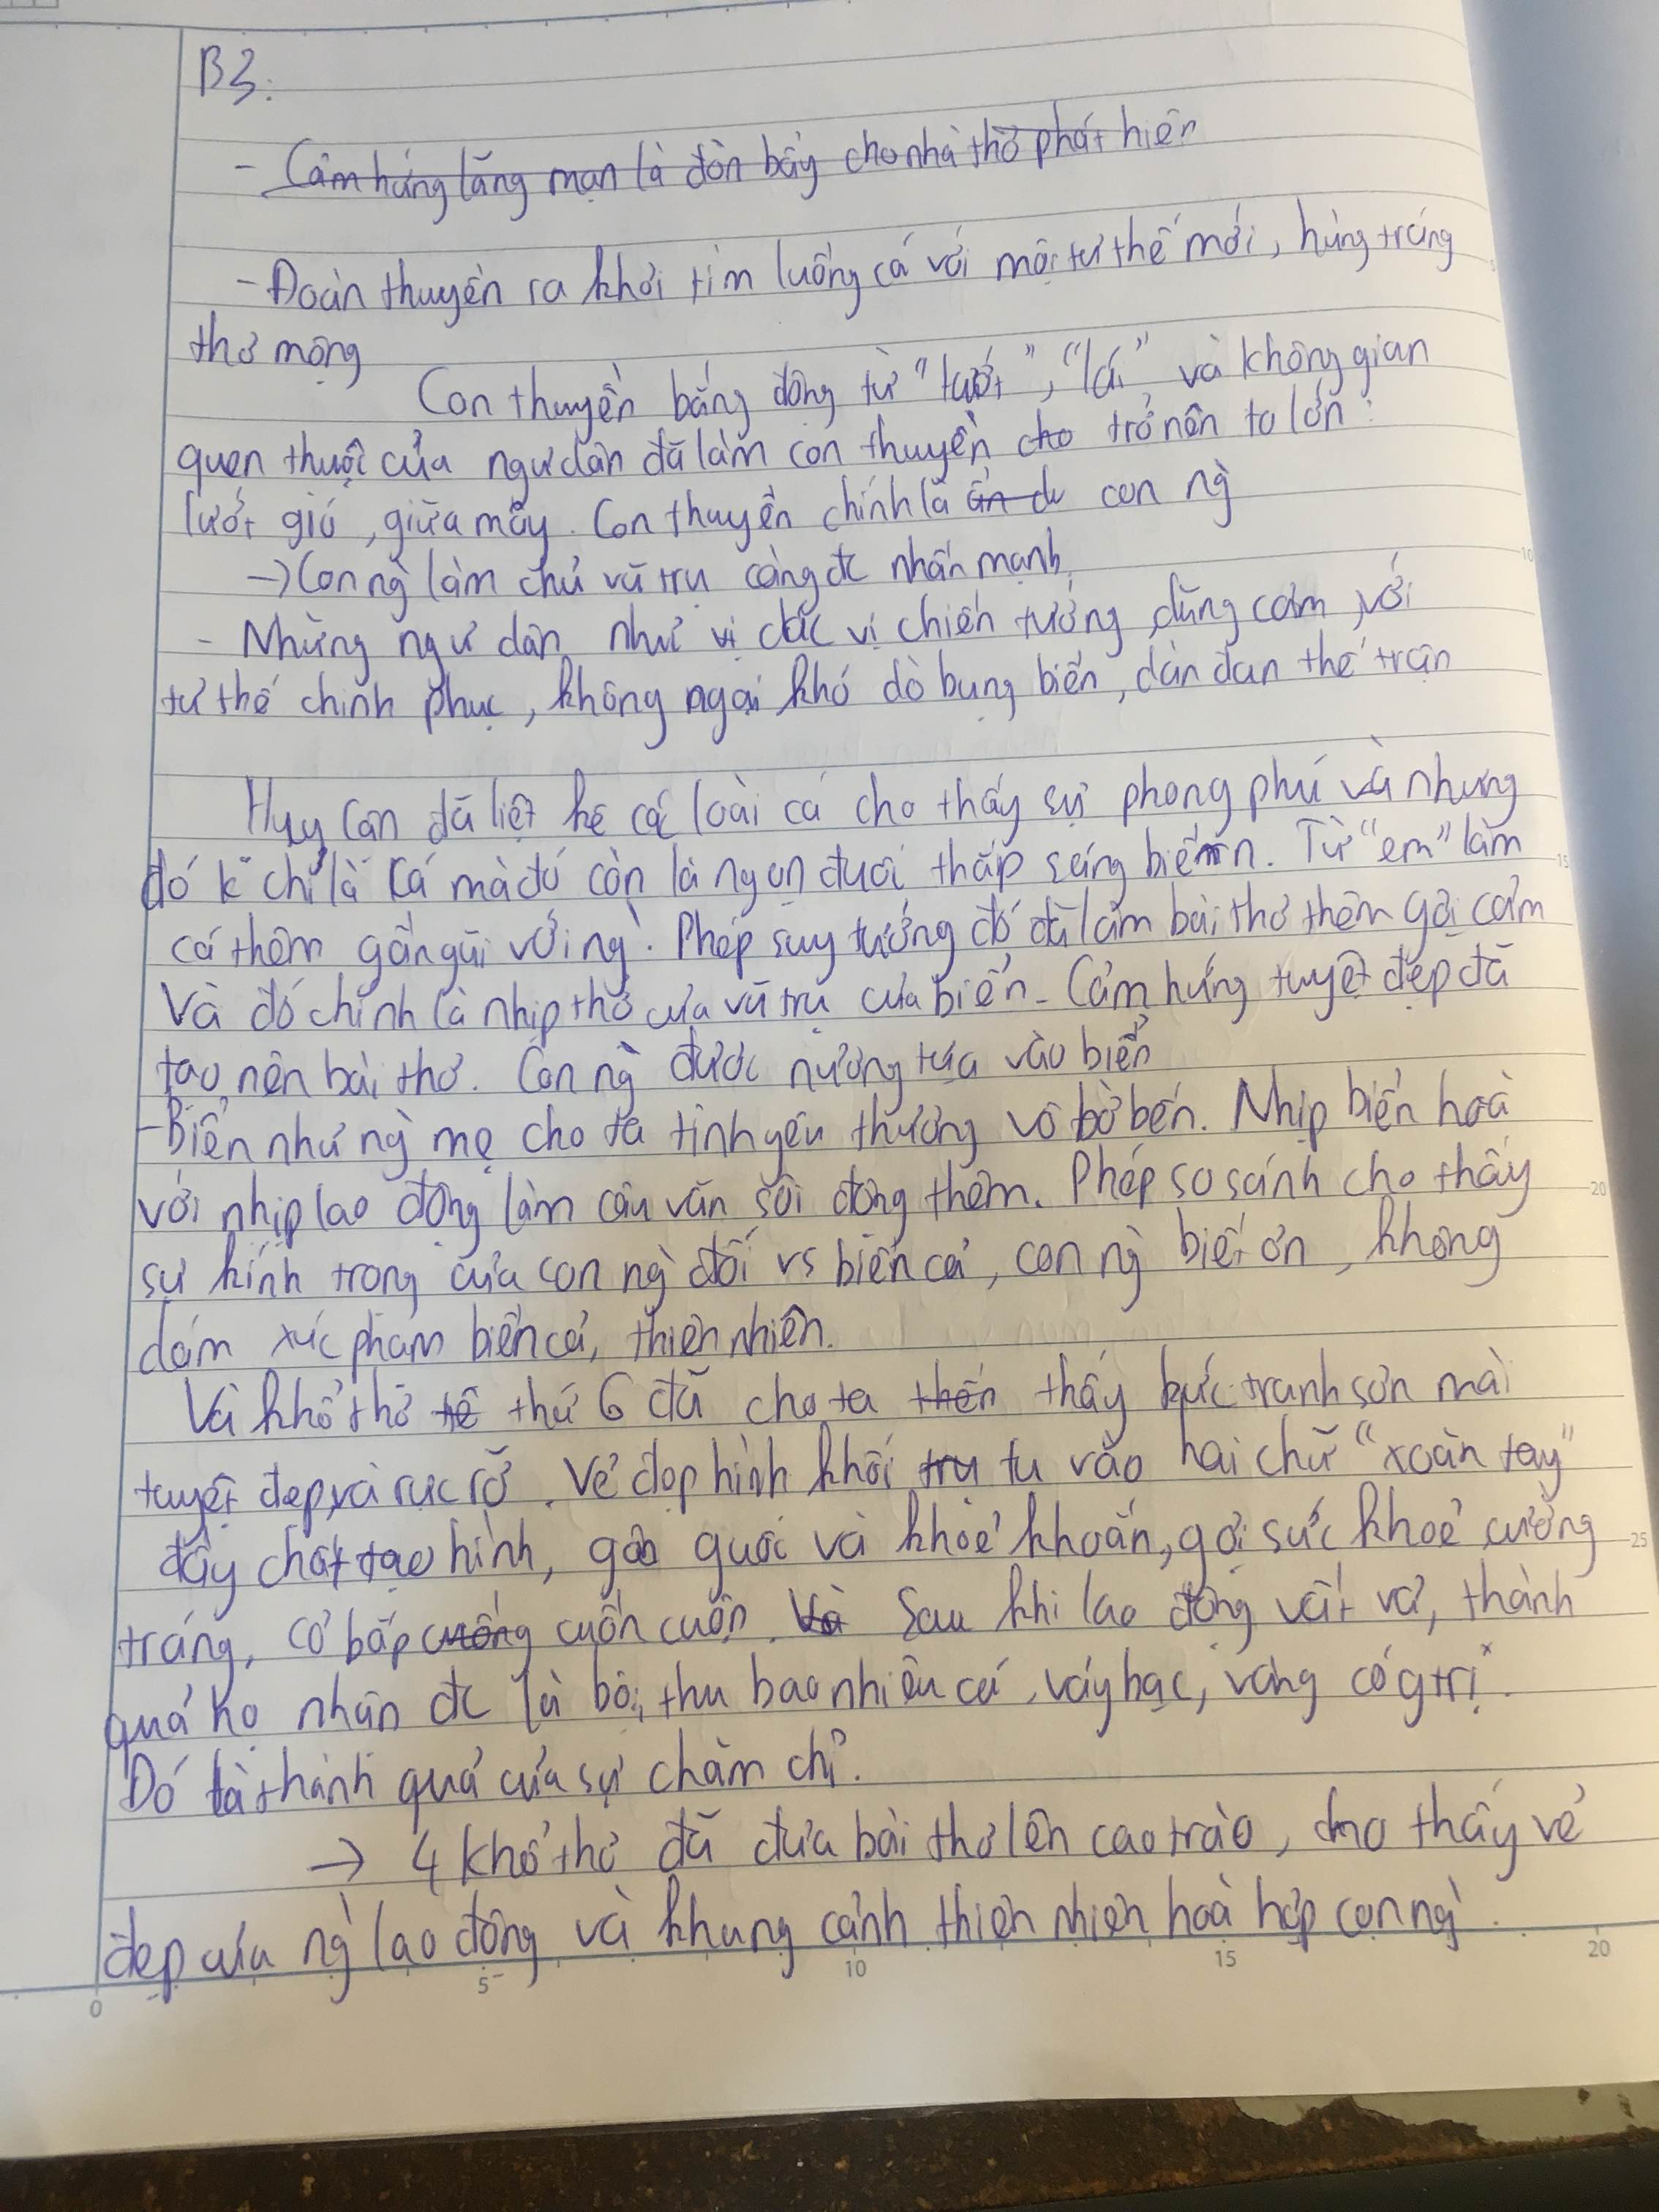 B3:
- Cảm hứng lãng mạn là đòn bẩy cho nhà thơ phát hiện
- Đoàn thuyền ra khơi tìm luồng cá với một tư thế mới, hùng tráng
thơ mộng
Con thuyền bằng động từ "lướt", "lái" và không gian
quen thuộc của ngư dân đã làm con thuyền cho trở nên to lớn :
lướt gió, giữa mây. Con thuyền chính là ẩn dụ con ng̀
→ Con ng̀ làm chủ vũ trụ càng đc nhấn mạnh
- Những ngư dân như vị các vị chiến tướng, dũng cảm, với
tư thế chinh phục, không ngại khó dò bụng biển, dàn đan thế trận
Huy Cận đã liệt kê các loài cá cho thấy sự phong phú và nhưng
đó k chỉ là cá mà đó còn là ngọn đuốc thắp sáng biển. Từ "em" làm
cá thêm gần gũi với ng̀. Phép suy tưởng đó đã làm bài thơ thêm gợi cảm
Và đó chính là nhịp thở của vũ trụ của biển. Cảm hứng tuyệt đẹp đã
tạo nên bài thơ. Con ng̀ được nương tựa vào biển
- Biển như ng̀ mẹ cho ta tình yêu thương vô bờ bến. Nhịp biển hoà
với nhịp lao động làm câu văn sôi động thêm. Phép so sánh cho thấy
sự kính trọng của con ng̀ đối vs biển cả, con ng̀ biết ơn, không
dám xúc phạm biển cả, thiên nhiên.
Và khổ thơ thứ 6 đã cho ta thấy bức tranh sơn mài
tuyệt đẹp và rực rỡ. Vẻ đẹp hình khối tụ vào hai chữ "xoăn tay"
đầy chất tạo hình, gân guốc và khoẻ khoắn, gợi sức khoẻ cường
tráng, cơ bắp cuống cuồn cuộn. Và Sau khi lao động vất vả, thành
quả họ nhận đc là bội thu bao nhiêu cá, vảy bạc, vàng có gtrị.
Đó là thành quả của sự chăm chỉ.
→ 4 khổ thơ đã đưa bài thơ lên cao trào, cho thấy vẻ
đẹp của ng̀ lao động và khung cảnh thiên nhiên hoà hợp con ng̀.
0 5 10 15 20
10
15
20
25